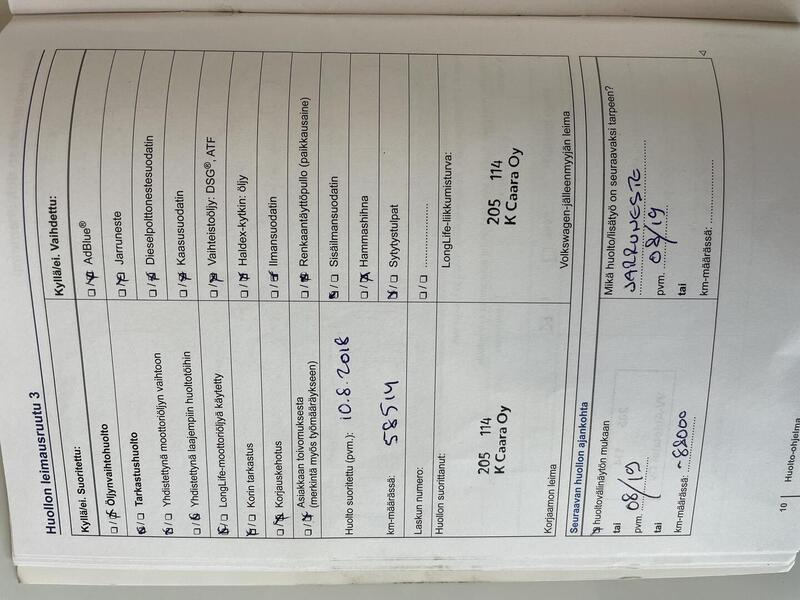 Huollon leimausruutu 3
Kyllä/ei. Suoritettu:
□/□ Öljynvaihtohuolto
□/□ Tarkastushuolto
□/□ Yhdistettynä moottoriöljyn vaihtoon
□/□ Yhdistettynä laajempiin huoltotöihin
□/□ LongLife-moottoriöljyä käytetty
□/□ Korin tarkastus
□/□ Korjauskehotus
□/□ Asiakkaan toivomuksesta
(merkintä myös työmääräykseen)
Huolto suoritettu (pvm.): 10.8.2018
km-määrässä: 58514
Laskun numero:
Huollon suorittanut:
205 114
K Caara Oy
Korjaamon leima
Kyllä/ei. Vaihdettu:
□/□ AdBlue®
□/□ Jarruneste
□/□ Dieselpolttonestesuodatin
□/□ Kaasusuodatin
□/□ Vaihteistoöljy: DSG®, ATF
□/□ Haldex-kytkin: öljy
□/□ Ilmansuodatin
□/□ Renkaantäyttöpullo (paikkausaine)
□/□ Sisäilmansuodatin
□/□ Hammashihna
□/□ Sytytystulpat
□/□ ....................
LongLife-liikkumisturva:
205 114
K Caara Oy
Volkswagen-jälleenmyyjän leima
Seuraavan huollon ajankohta
□ huoltovälinäytön mukaan
tai
pvm. 08/19
tai
km-määrässä: ~88000
Mikä huolto/lisätyö on seuraavaksi tarpeen?
JARRUNESTE
pvm. 08/19
tai
km-määrässä: ....................
10 | Huolto-ohjelma